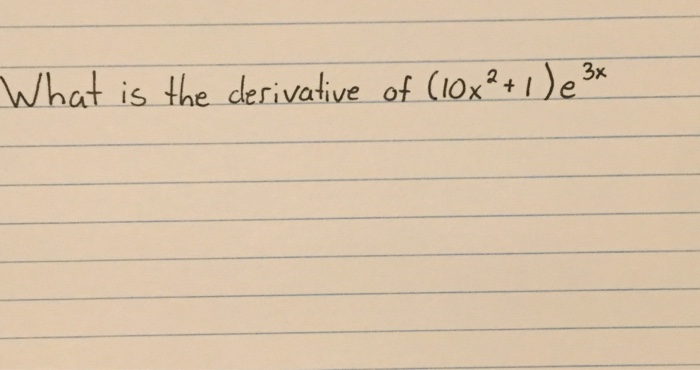 What is the derivative of (10x²+1)e³ˣ